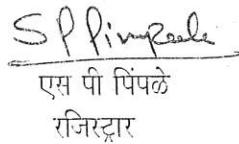 S P Pimpale
एस पी पिंपळे
रजिस्ट्रार